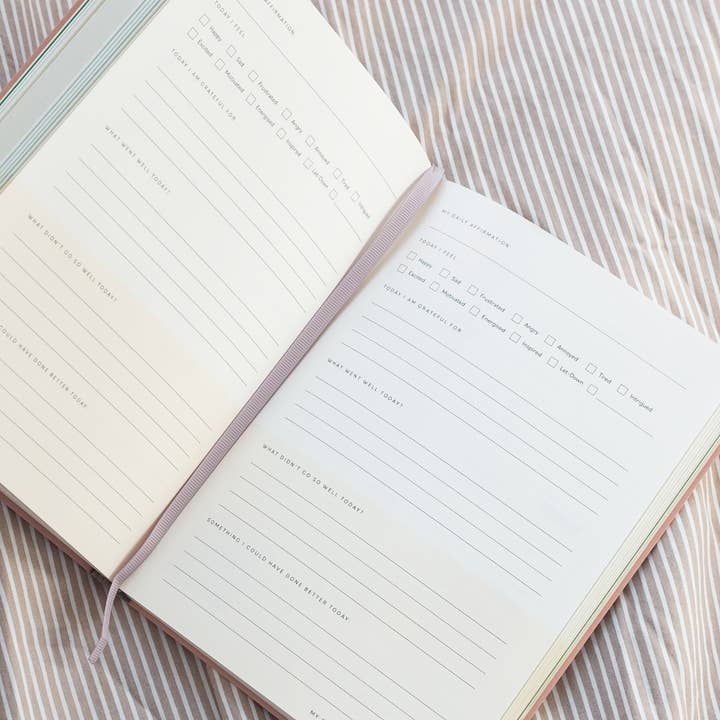 AFFIRMATION
TODAY I FEEL
Happy Sad Frustrated Angry Annoyed Tired Intrigued
Excited Motivated Energised Inspired Let-Down
TODAY I AM GRATEFUL FOR
WHAT WENT WELL TODAY?
WHAT DIDN'T GO SO WELL TODAY?
COULD HAVE DONE BETTER TODAY
MY DAILY AFFIRMATION
TODAY I FEEL
Happy Sad Frustrated Angry Annoyed Tired Intrigued
Excited Motivated Energised Inspired Let-Down
TODAY I AM GRATEFUL FOR
WHAT WENT WELL TODAY?
WHAT DIDN'T GO SO WELL TODAY?
SOMETHING I COULD HAVE DONE BETTER TODAY
MY